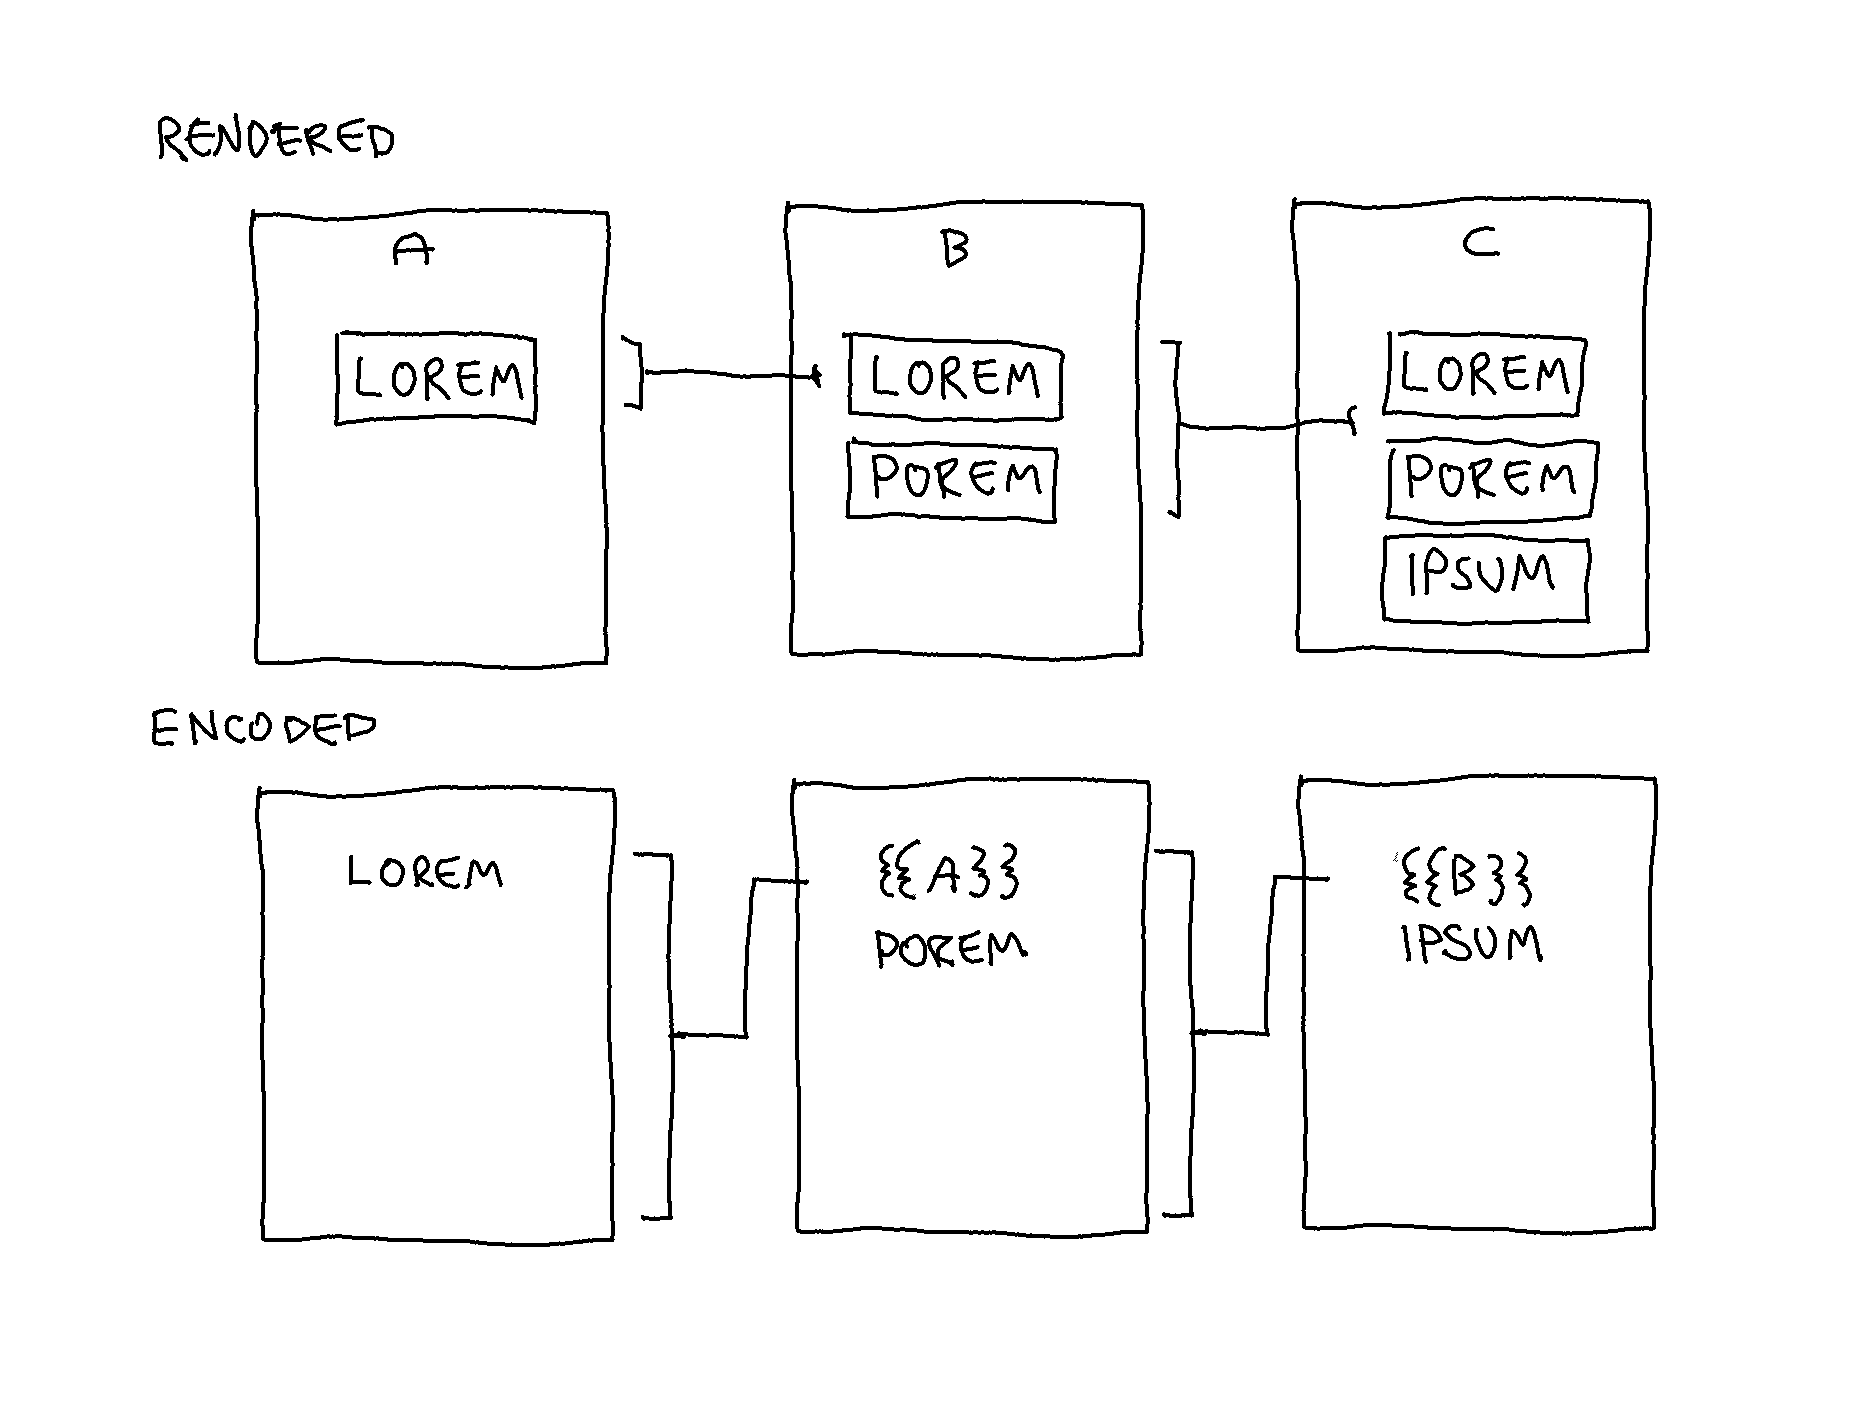 RENDERED
A
LOREM
B
LOREM
POREM
C
LOREM
POREM
IPSUM
ENCODED
LOREM
{{A}}
POREM
{{B}}
IPSUM